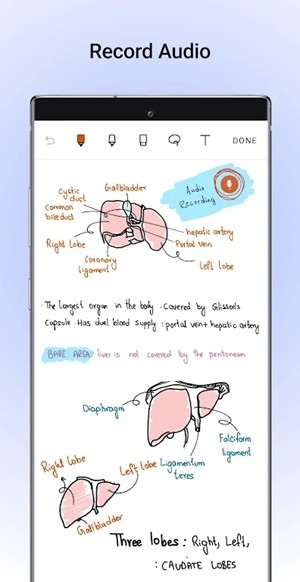 Record Audio
T DONE
Cystic duct
Gallbladder
Common bileduct
Audio Recording
Right Lobe
hepatic artery
Portal vein
Coronary ligament
Left Lobe
· The largest organ in the body · Covered by Glisson's
Capsule · Has dual blood supply : portal vein + hepatic artery
BARE AREA liver is not covered by the peritoneum
Diaphragm
Falciform ligament
Right lobe
Left lobe
Ligamentum teres
Gallbladder
Three lobes : Right, Left,
: CAUDATE LOBES